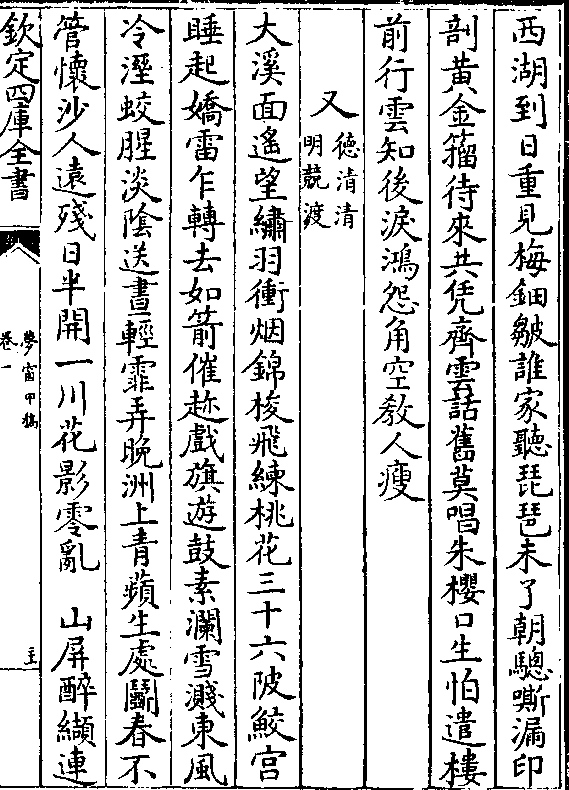 西湖到日重見梅鈿皺誰家聽琵琶未了朝驄嘶漏印
剖黃金籀待來共凭齊雲話舊莫唱朱櫻口生怕遣樓
前行雲知後淚鴻怨角空教人瘦
又德清清
明競渡
大溪面遙望繡羽衝烟錦梭飛練桃花三十六陂鮫宮
睡起嬌雷乍轉去如箭催趂戲旗遊鼓素瀾雪濺東風
冷溼蛟腥淡陰送晝輕霏弄晚洲上青蘋生處鬭春不
管懷沙人遠殘日半開一川花影零亂　山屏醉纈連
欽定四庫全書
夢窗甲稿
卷一